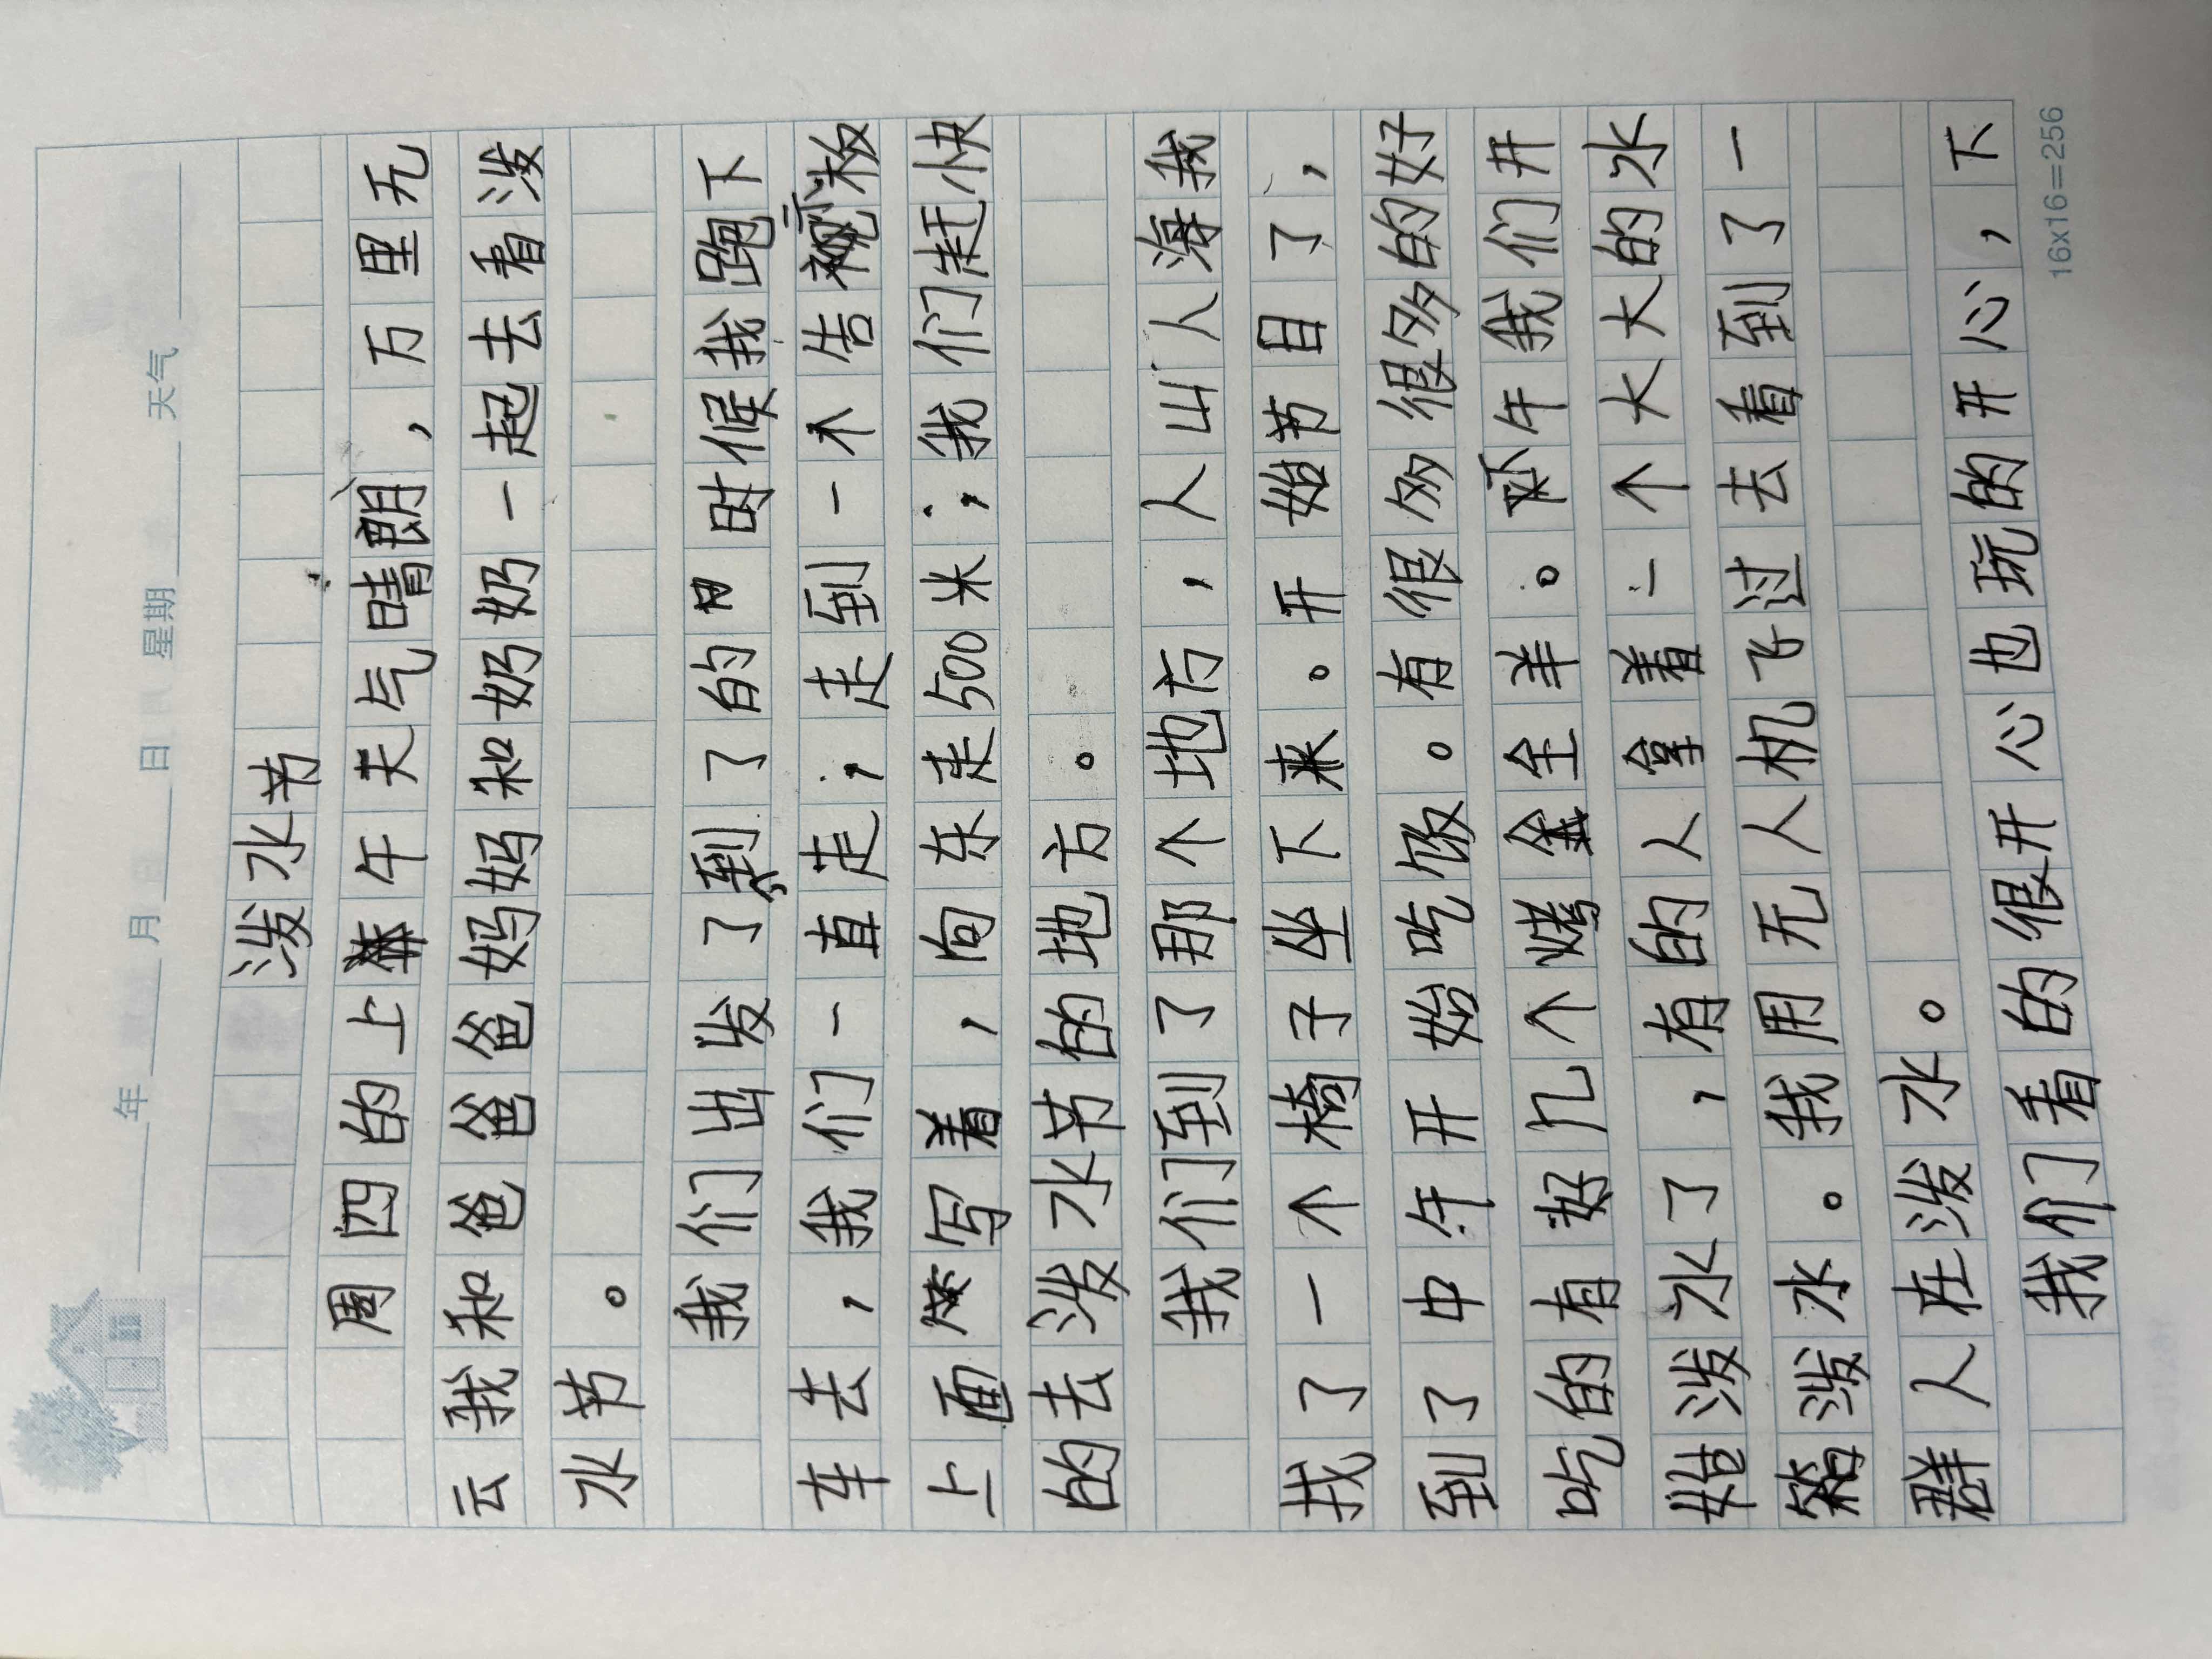 年 月 日 星期 天气
泼水节
周四的上午天气晴朗，万里无
云我和爸爸爸妈妈和奶奶一起去看泼
水节。
我们出发了到了的时候我跑下
车去，我们一直走，走到一个告示板
上面写着，向东走500米；我们赶快
的去泼水节的地方。
我们到了那个地方，人山人海我
找了一个椅子坐下来。开始节目了，
到了中午开始吃饭。有很多很多的好
吃的有好几个烤全羊。下午我们开
始泼水了，有的人拿着一个大大的水
箱泼水。我用无人机飞过去看到了一
群人在泼水。
我们看的很开心也玩的开心，下
16x16=256